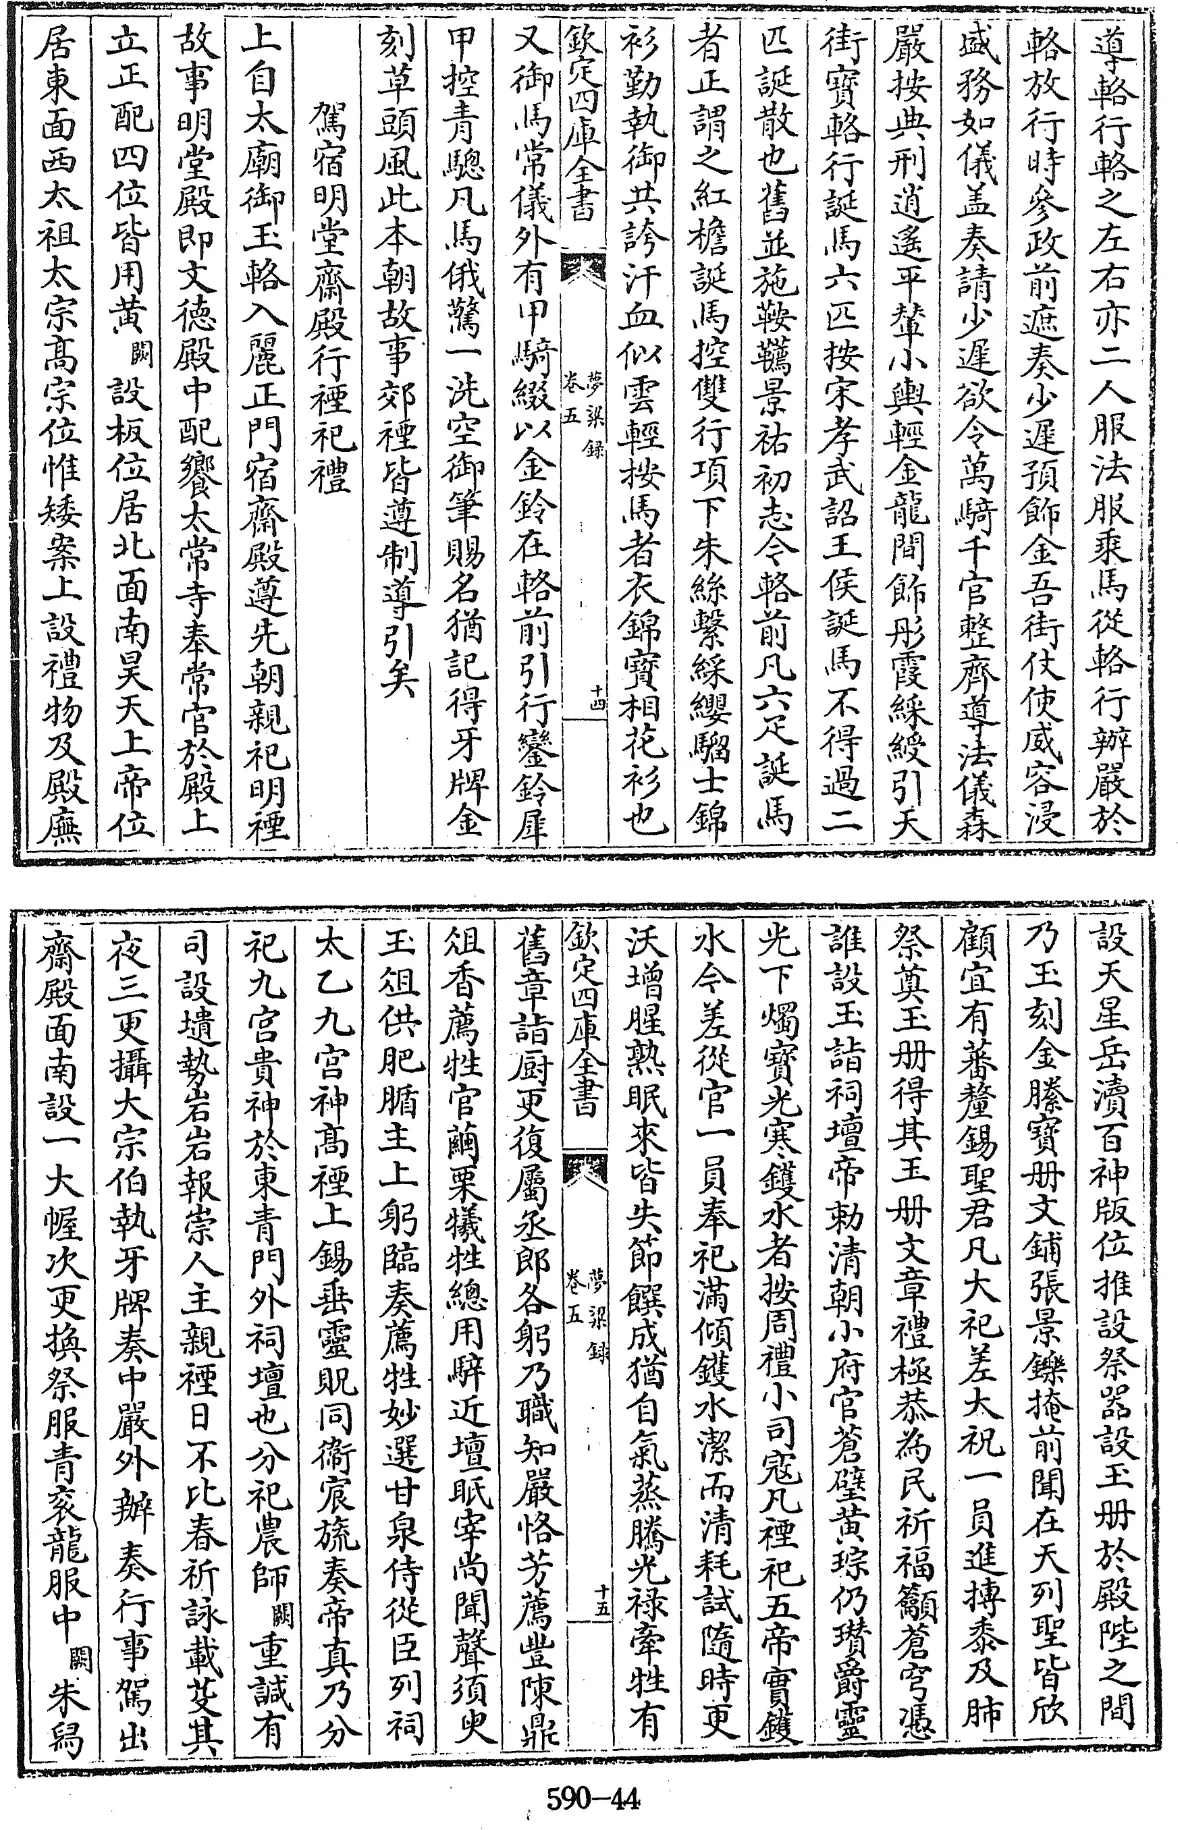 導輅行輅之左右亦二人服法服乘馬從輅行辦嚴於
輅放行時參政前遮奏少遲預飾金吾街仗使威容浸
盛務如儀盖奏請少遲欲令萬騎千官整齊導法儀森
嚴按典刑逍遙平輦小輿輕金龍間飾彤霞綵綬引天
街寶輅行誕馬六匹按宋孝武詔王侯誕馬不得過二
匹誕散也舊並施鞍韉景祐初志令輅前凡六疋誕馬
者正謂之紅檐誕馬控雙行項下朱絲繫綵纓騮士錦
衫勤執御共誇汗血似雲輕按馬者衣錦寶相花衫也
欽定四庫全書
夢粱録
卷五
十四
又御馬常儀外有甲騎綴以金鈴在輅前引行鑾鈴犀
甲控青驄凡馬俄驚一洗空御筆賜名猶記得牙牌金
刻草頭風此本朝故事郊禋皆遵制導引矣
駕宿明堂齋殿行禋祀禮
上自太廟御玉輅入麗正門宿齋殿遵先朝親祀明禋
故事明堂殿即文德殿中配饗太常寺奉常官於殿上
立正配四位皆用黄闕設板位居北面南昊天上帝位
居東面西太祖太宗高宗位惟矮案上設禮物及殿廡
設天星岳瀆百神版位推設祭器設玉册於殿陛之間
乃玉刻金縢寶册文鋪張景鑠掩前聞在天列聖皆欣
顧宜有蕃釐錫聖君凡大祀差大祝一員進摶黍及肺
祭奠玉册得其玉册文章禮極恭為民祈福籲蒼穹憑
誰設玉詣祠壇帝勅清朝小府官蒼璧黄琮仍瓉爵靈
光下燭寶光寒鑊水者按周禮小司寇凡禋祀五帝實鑊
水今差從官一員奉祀滿傾鑊水潔而清耗試隨時更
沃增腥熟眠來皆失節饌成猶自氣蒸騰光禄牽牲有
欽定四庫全書
夢粱録
卷五
十五
舊章詣厨更復屬丞郎各躬乃職知嚴恪芳薦豐陳鼎
俎香薦牲官繭栗犧牲總用騂近壇眡宰尚聞聲須臾
玉俎供肥腯主上躬臨奏薦牲妙選甘泉侍從臣列祠
太乙九宫神高禋上錫垂靈貺同衞宸旒奏帝真乃分
祀九宫貴神於東青門外祠壇也分祀農師闕重諴有
司設壝勢岩岩報崇人主親禋日不比春祈詠載芟其
夜三更攝大宗伯執牙牌奏中嚴外辦奏行事駕出
齋殿面南設一大幄次更換祭服青衮龍服中闕朱舄
590-44